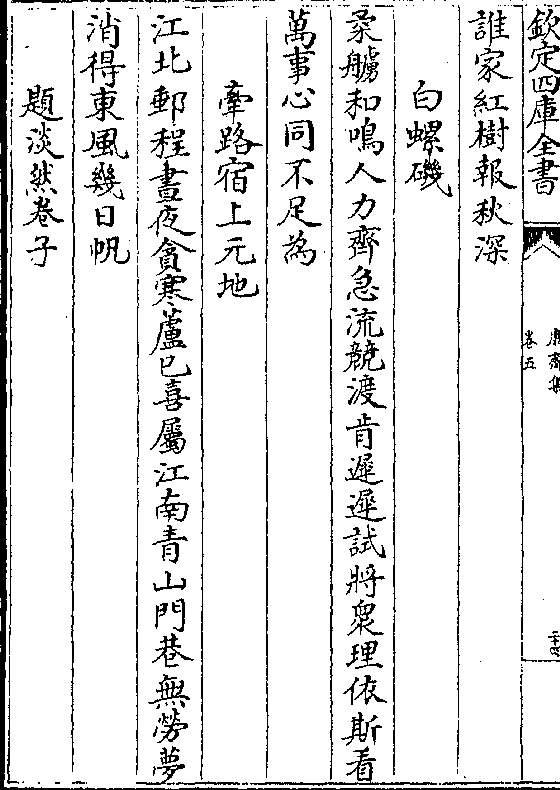 欽定四庫全書
卷五
二十四
誰家紅樹報秋深
白螺磯
柔艣和鳴人力齊急流競渡肯遲遲試將衆理依斯看
萬事心同不足為
牽路宿上元地
江北郵程晝夜貪寒蘆已喜屬江南青山門巷無勞夢
消得東風幾日帆
題淡然卷子